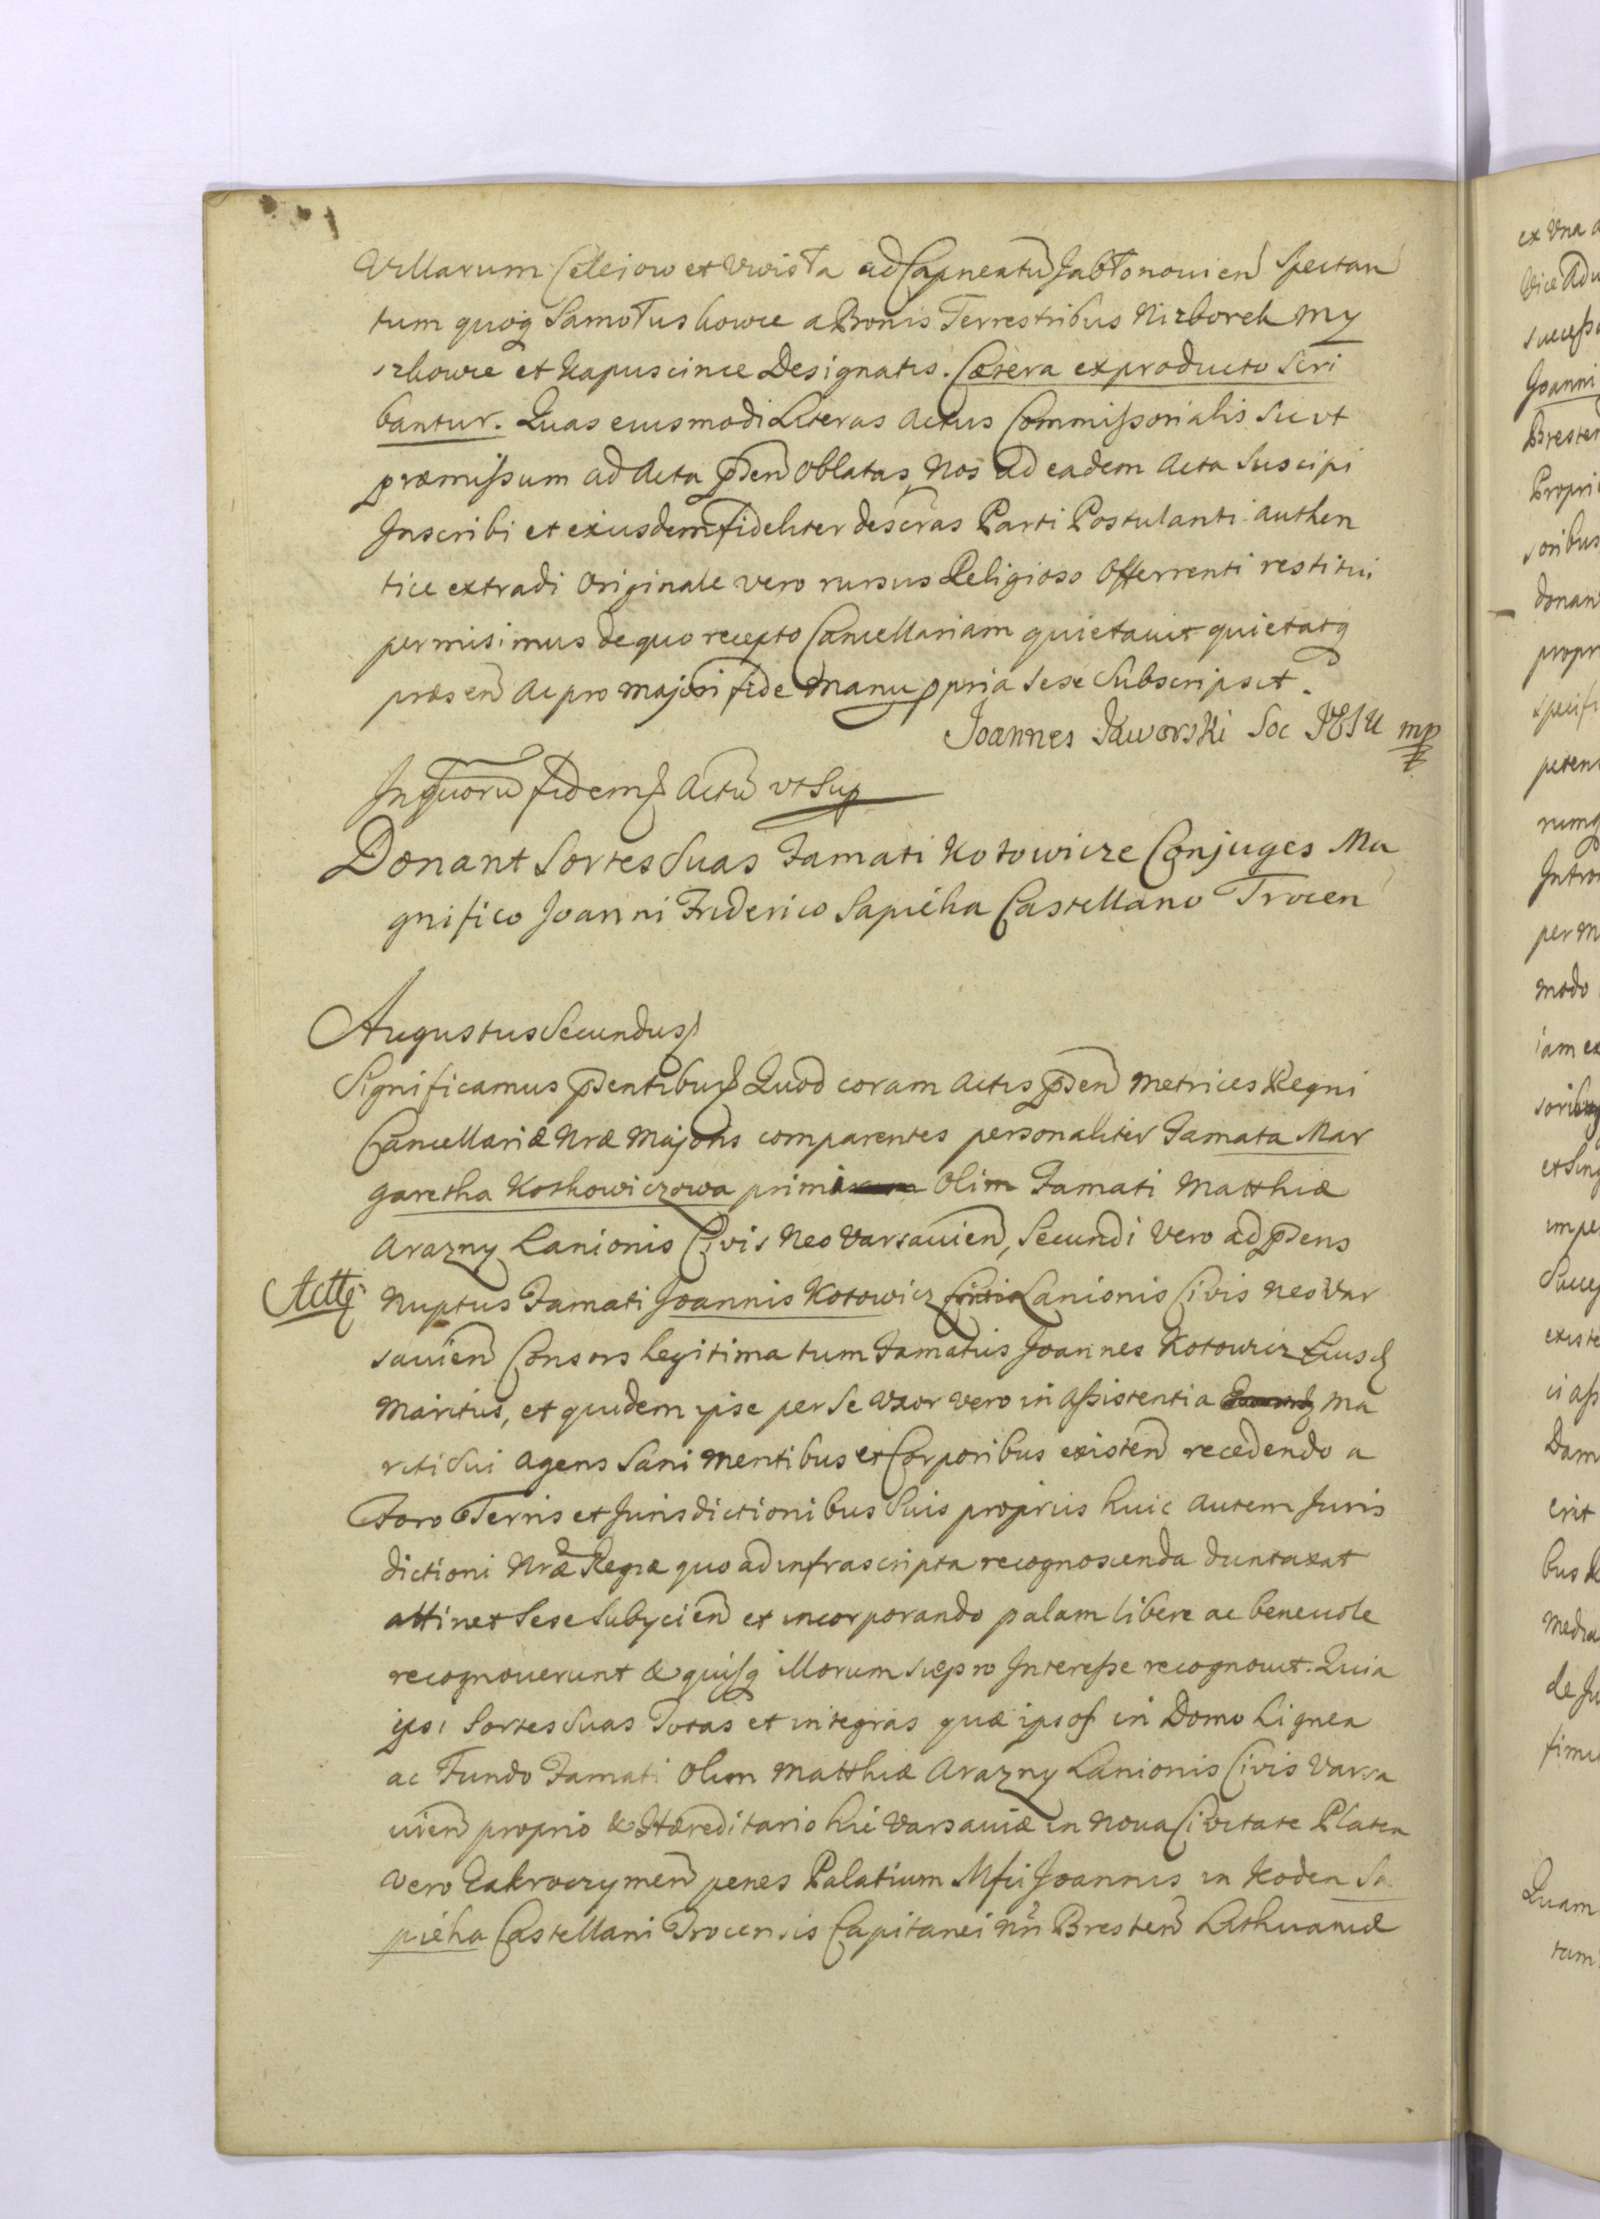 Villarum Celeiow et Uwisła ad Capneatũ Jabłonouien Spectan
tum quoq Samołuskowce a Bonis Terrestribus Nizborek My
szkowce et Kapuscince Designatis. Cætera ex producto Scri
bantur. Quas eiusmodi Literas Actus Commissorialis Sic ut
præmissum ad Acta pñsen Oblatas, Nos ad eadem Acta Suscipi
Inscribi et exiusdem fideliter descras Parti Postulanti authen
tice extradi Originale vero rursus Religioso Offerrenti restitui
permisimus de quo recepto Cancellariam quietauit quietatq
præsen Ac pro majori fide Manu ppria Sese Subscripsit.
Joannes Jaworski Soc JESU mp
In quorũ fidem Actũ ut Sup
Donant Sortes Suas Famati Kotowicze Conjuges Ma
gnifico Joanni Friderico Sapieha Castellano Trocen
Augustus Secundus
Significamus pñsentibus Quod coram Actis pñsen Metrices Regni
Cancellariæ Nræ Majoris comparentes personaliter Famata Mar
garetha Kotkowiczowa primi Olim Famati Matthiæ
Arazny Lanionis Civis Neo Varsauien, Secundi Vero ad pñsens
Acttq Nuptus Famati Joannis Kotowicz Lanionis Civis Neo Var
sauien Consors legitima tum Famatus Joannes Kotowicz Eiusd
Maritus, et quidem ipse per Se Uxor vero in Assistentia Ma
riti Sui Agens Sani Mentibus et Corporibus existen recedendo a
Foro Terris et Jurisdictionibus Suis proprijs huic Autem Juris
dictioni Nræ Regiæ quo ad infrascripta recognoscenda duntaxat
attinet Sese Subycien et incorporando palam libere ac beneuole
recognouerunt & quisq illorum Sup pro Interesse recognouit. Quia
ipsi Sortes Suas Totas et integras quæ ipsos in Domo Lignea
ac Fundo Famati Olim Matthiæ Arazny Lanionis Civis Varsa
uien proprio & Hæreditario hic Varsauiæ in Noua Civitate Platea
Vero Zakroczymen penes Palatium Mfci Joannis in Koden Sa
pieha Castellani Trocensis Capitanei Nri Bresten Lithuaniæ